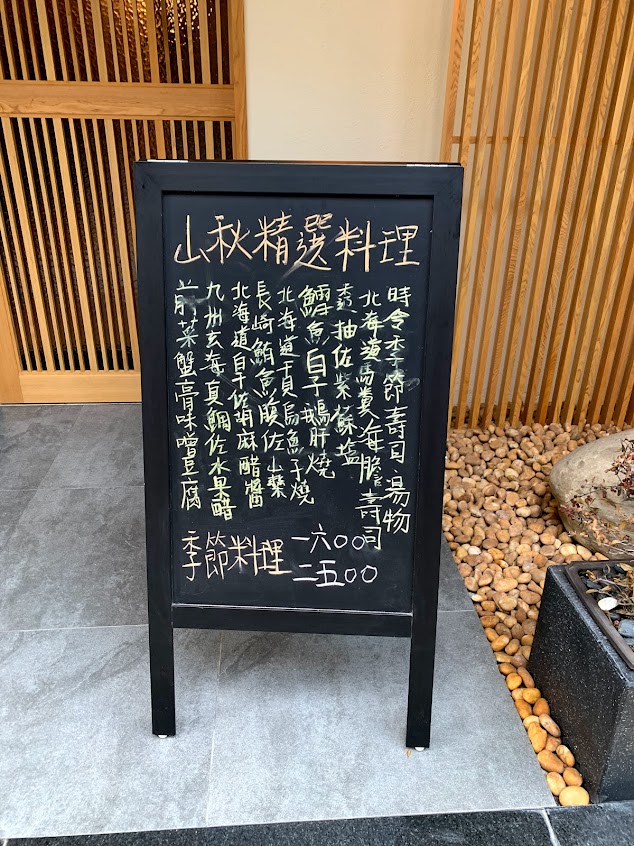 山秋精選料理
時令季節壽司湯物
北海道馬糞海膽壽司
香柚佐紫蘇塩
鱈魚白子鵝肝燒
北海道干貝烏魚子燒
長崎鮪魚腹佐山藥
北海道白干佐胡麻醋醬
九州玄海真鯛佐水果醋
前菜蟹膏味噌豆腐
季節料理 一六〇〇
二五〇〇